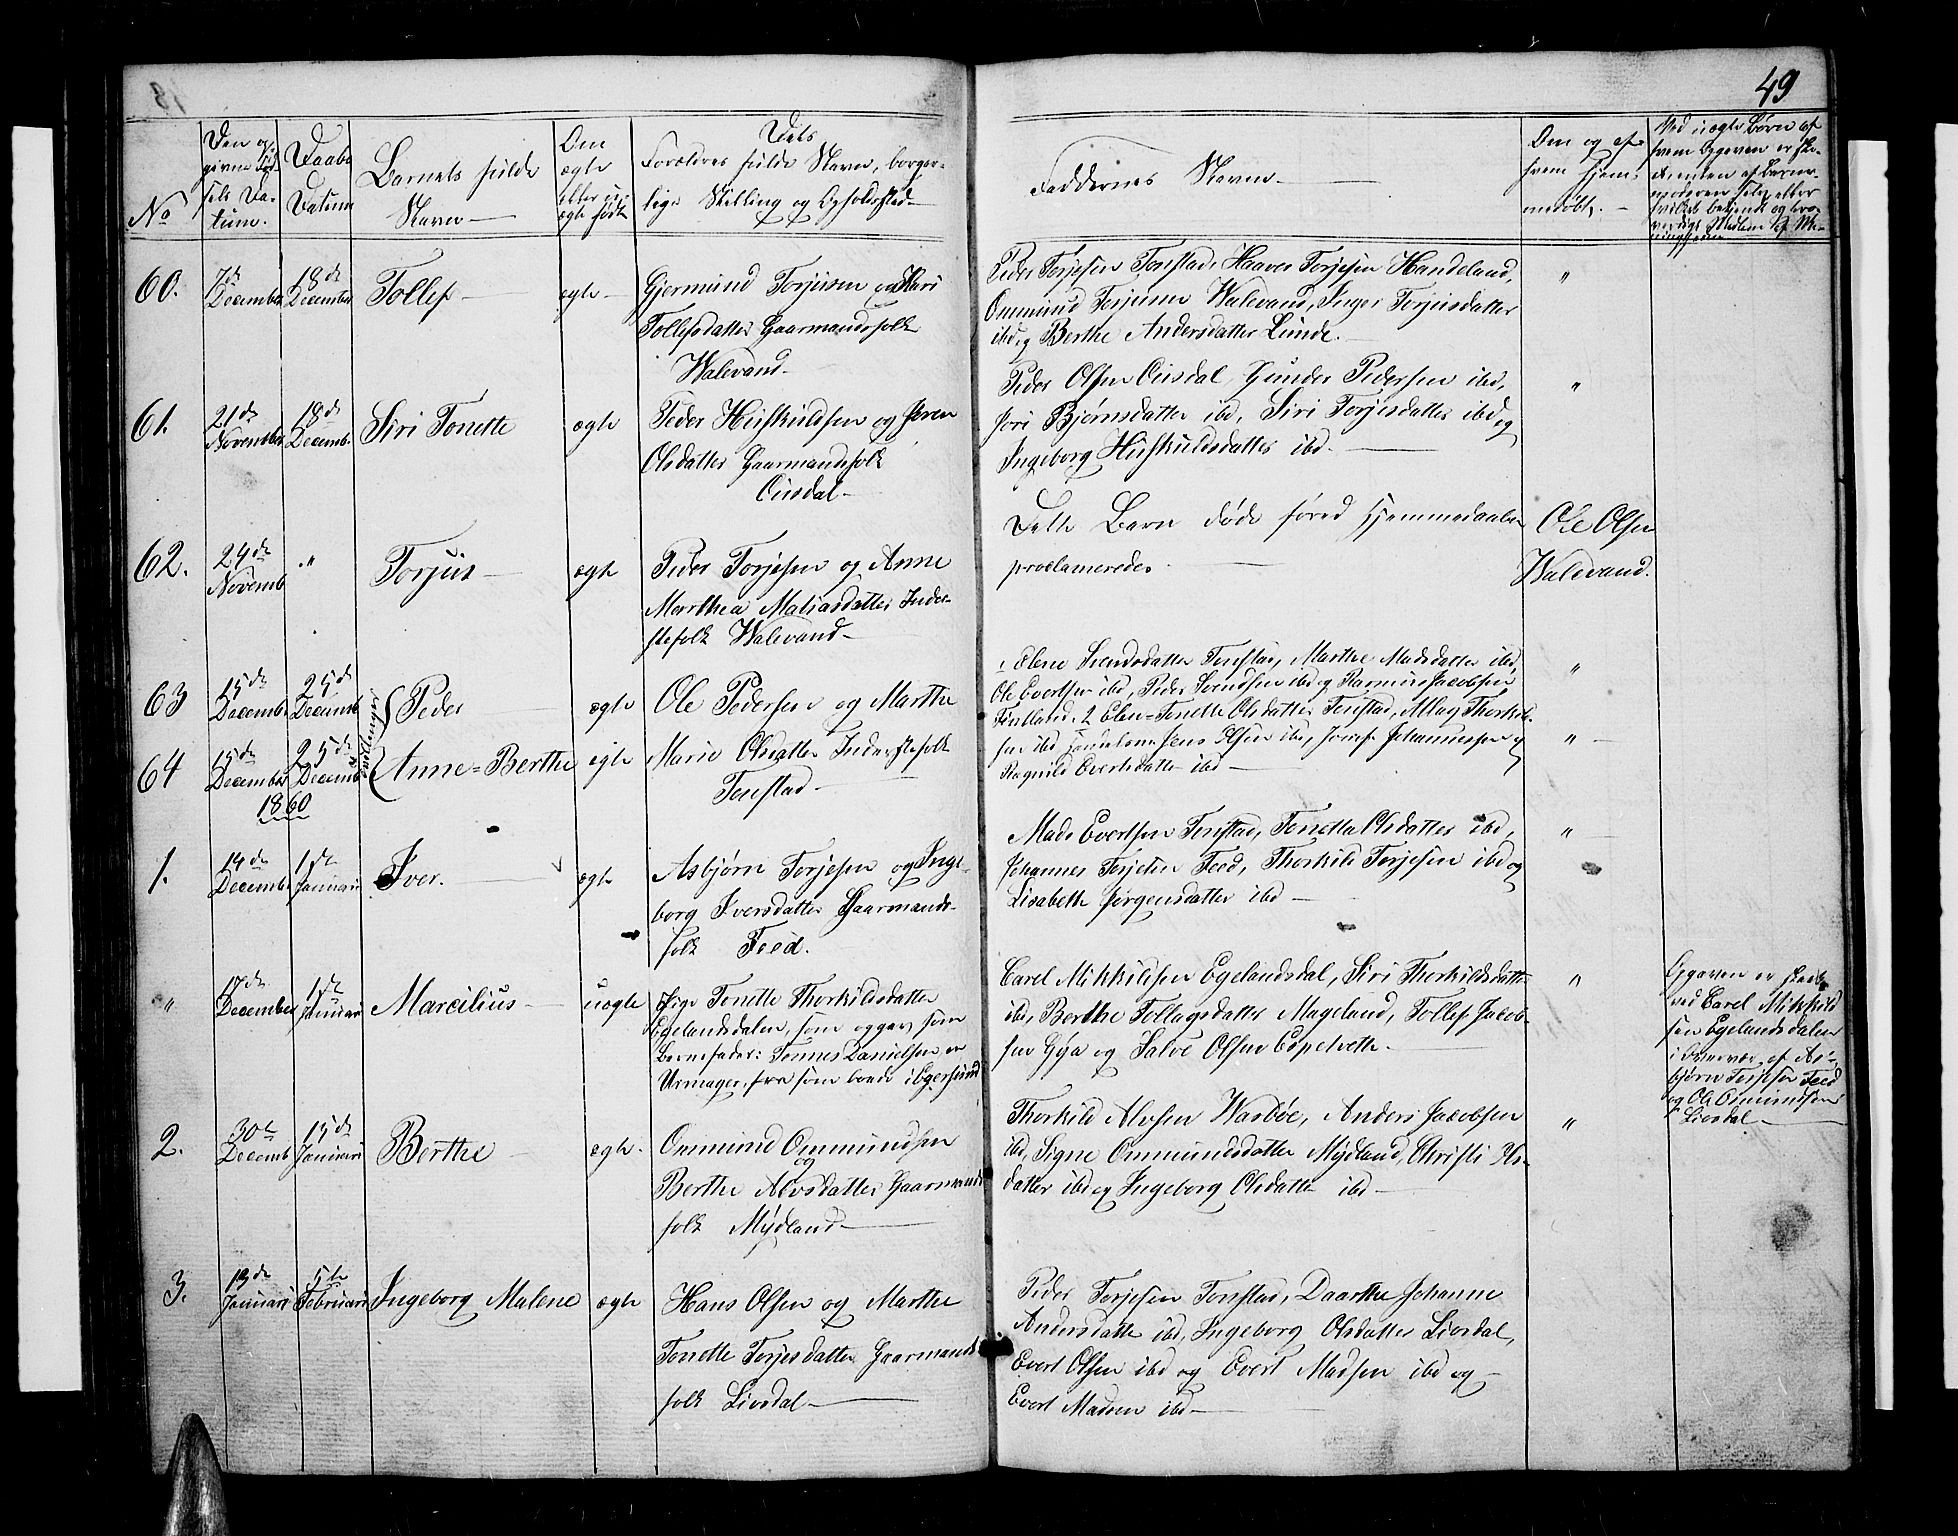 49
No
Den op-
givne Fød-
sels Da-
tum.
Daabs
Datum
Barnets fulde
Navn
Om
ægte
eller u-
ægte født
Dets
Forældres fulde Navn, borger-
lige Stilling og Opholdssted
Faddernes Navne
Om og af
hvem hjem-
medøbt.
Ved uægte Børn af
hvem Opgaven er ske
60.
7de
December
18de
December
Tollef
ægte
Gjermund Torjusen og Kari
Tollefsdatter Gaarmandsfolk
Walevand
Peder Torjesen Tonstad, Haaver Torjesen Handeland,
Ommund Torjusen Walevand, Inger Torjusdatter
ibd og Berthe Andersdatter Lunde.
"
61.
21de
November
18de
Decemb
Siri Tonette
ægte
Peder Huskuldsen og
Olsdatter Gaarmandsfolk
Ousdal
Peder Olsen Ousdal, Gunder Pedersen ibd,
Jori Bjørnsdatter ibd, Siri Torjesdatter ibd og
Ingeborg Huskuldsdatter ibd
"
62.
24de
Novemb
"
Torjus
ægte
Peder Torjesen og Anne
Marthea Matiasdatter Inder-
stefolk Walevand
Dette Barn døde førend Hjemmedaaben
proclameredes
Ole Olsen
Walevand.
63
15de
Decemb
25de
Decemb
Peder
ægte
Ole Pedersen og Marthe
1, Elene Svendsdatter Tonstad, Marthe Madsdatter ibd,
Ole Evertsen ibd, Peder Svendsen ibd og Rasmus Jacobsen
"
64
15de
December
25de
Decemb
Tvillinger
Anne-Berthe
ægte
Marie Olsdatter Inderstefolk
Tonstad
2 Elen-Tonette Olsdatter Tonstad, Atlag Thorkil-
sen ibd Jens Olsen ibd, Johannessen og
Ragnild Evertsdatter ibd
"
1860
1.
14de
Decemb
1ste
Januari
Iver.
ægte
Asbjørn Torjesen og Inge-
borg Iversdatter Gaarmands-
folk Feed.
Mads Evertsen Tonstad, Tonetta Olsdatter ibd,
Johannes Torjesen Feed, Thorkild Torjesen ibd og
Lisabeth Jørgensdatter ibd
"
"
17de
December
1ste
Januari
Marcilius
uægte
Pige Tonette Thorkildsdatter
Egelandsdalen, som opgav som
Barnefader: Tønnes Danielsen en
Urmager, som boede i Egersund
Carel Mikkilsen Egelandsdal, Siri Thorkildsdatter
ibd, Berthe Tollagsdatter Mageland, Tollef Jacob-
sen Gya og Salve Olsen Espetveth
"
Opgaven er skeet
ved Carel Mikkild
sen Egelandsdalen
i Overvær af As-
bjørn Torjesen Feed
og Ole Ommundsen
Liosdal
2.
30te
Decemb
15de
Januari
Berthe
ægte
Ommund Ommundsen
og
Berthe Alvsdatter Gaarmands
folk Mydland
Thorkild Alvsen Wasbøe, Anders Jacobsen
ibd, Signe Ommundsdatter Mydland, Christi Ols-
datter ibd og Ingeborg Olsdatter ibd
"
3.
13de
Januari
5te
Februari
Ingeborg Malene
ægte
Hans Olsen og Marthe
Tonette Torjesdatter Gaarmands
folk Liosdal
Peder Torjesen Tonstad, Daarthe Johanne
Andersdatter ibd, Ingeborg Olsdatter Liosdal,
Evert Olsen ibd og Evert Madsen ibd og
Evert Madsen ibd